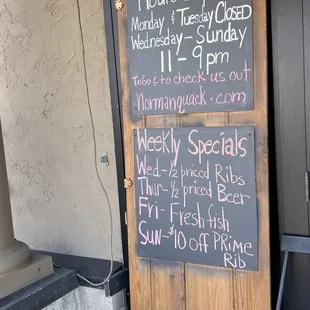 Hours of
Monday & Tuesday CLOSED
Wednesday - Sunday
11 - 9pm
To Go & to check us out
Normanquack.com
Weekly Specials
Wed - 1/2 priced Ribs
Thur - 1/2 priced Beer
Fri - Fresh fish
Sun - $10 off PRime
Rib